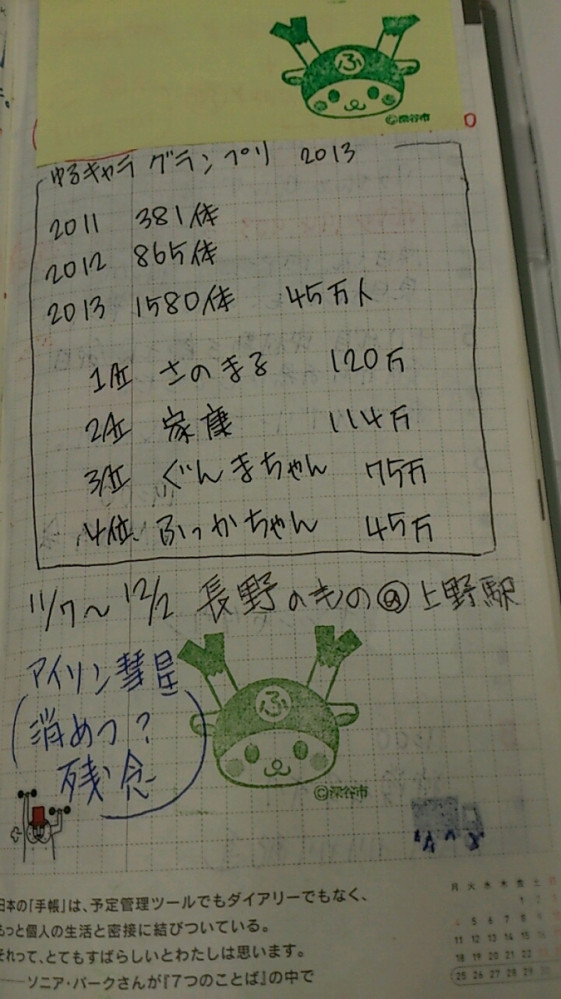 ふ
©深谷市
ゆるキャラ グランプリ 2013
2011 381体
2012 865体
2013 1580体 45万人
1位 さのまる 120万
2位 家康 114万
3位 ぐんまちゃん 75万
4位 ふっかちゃん 45万
11/7〜12/2 長野のもの@上野駅
アイソン彗星
消めつ?
残念
ふ
©深谷市
日本の「手帳」は、予定管理ツールでもダイアリーでもなく、
もっと個人の生活と密接に結びついている。
それって、とてもすばらしいとわたしは思います。
——ソニア・パークさんが『7つのことば』の中で
月 火 水 木 金 土 日
1 2 3
4 5 6 7 8 9 10
11 12 13 14 15 16 17
18 19 20 21 22 23 24
25 26 27 28 29 30